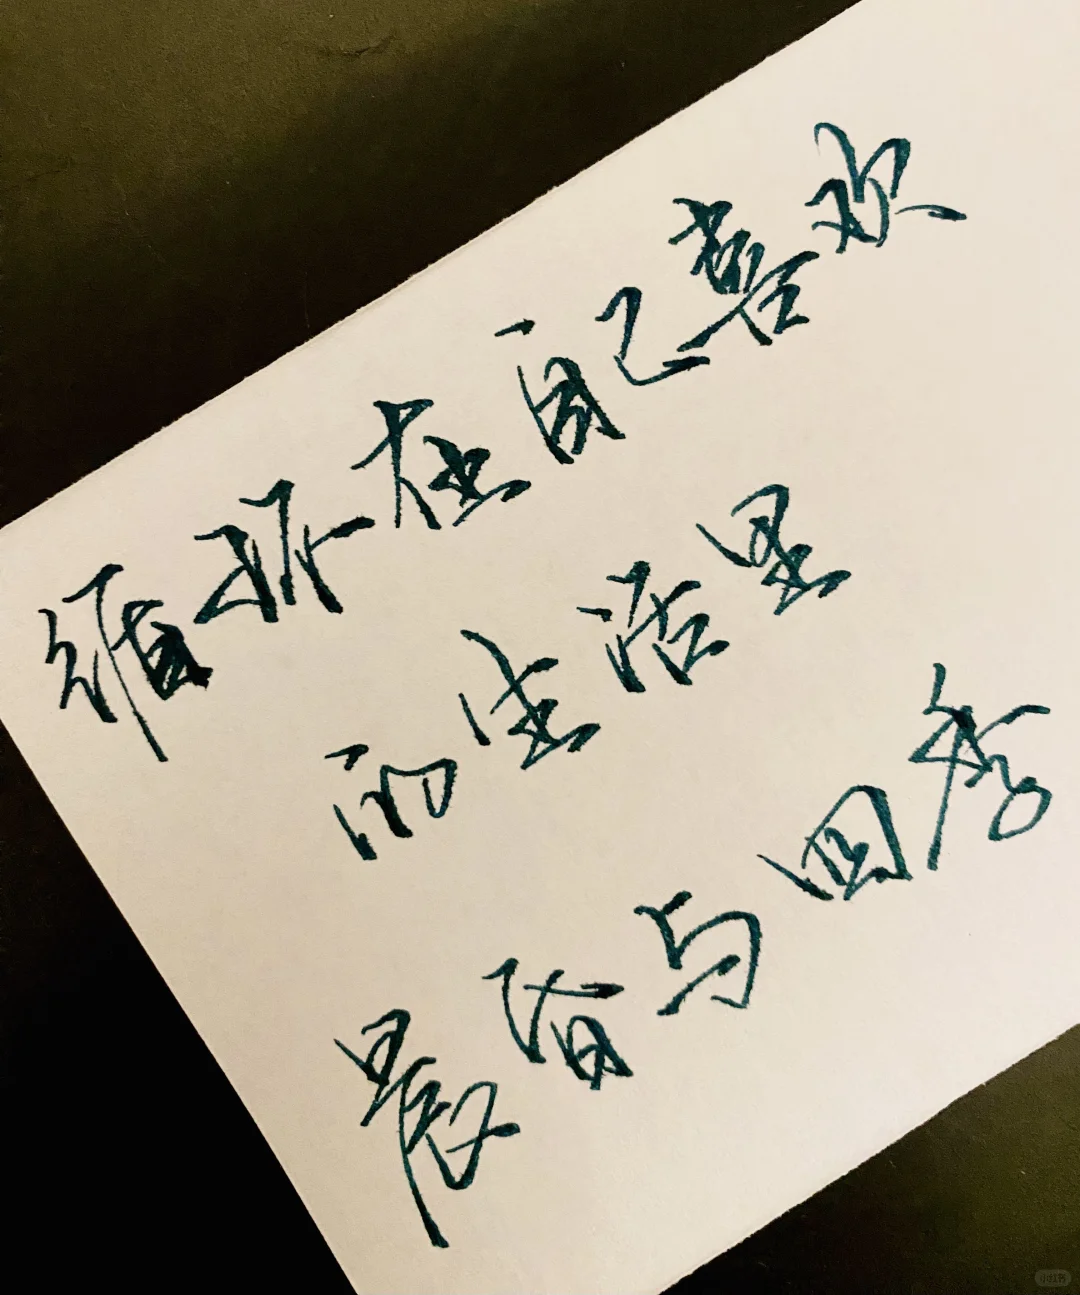 循环在自己喜欢
的生活里
晨昏与四季
小红书